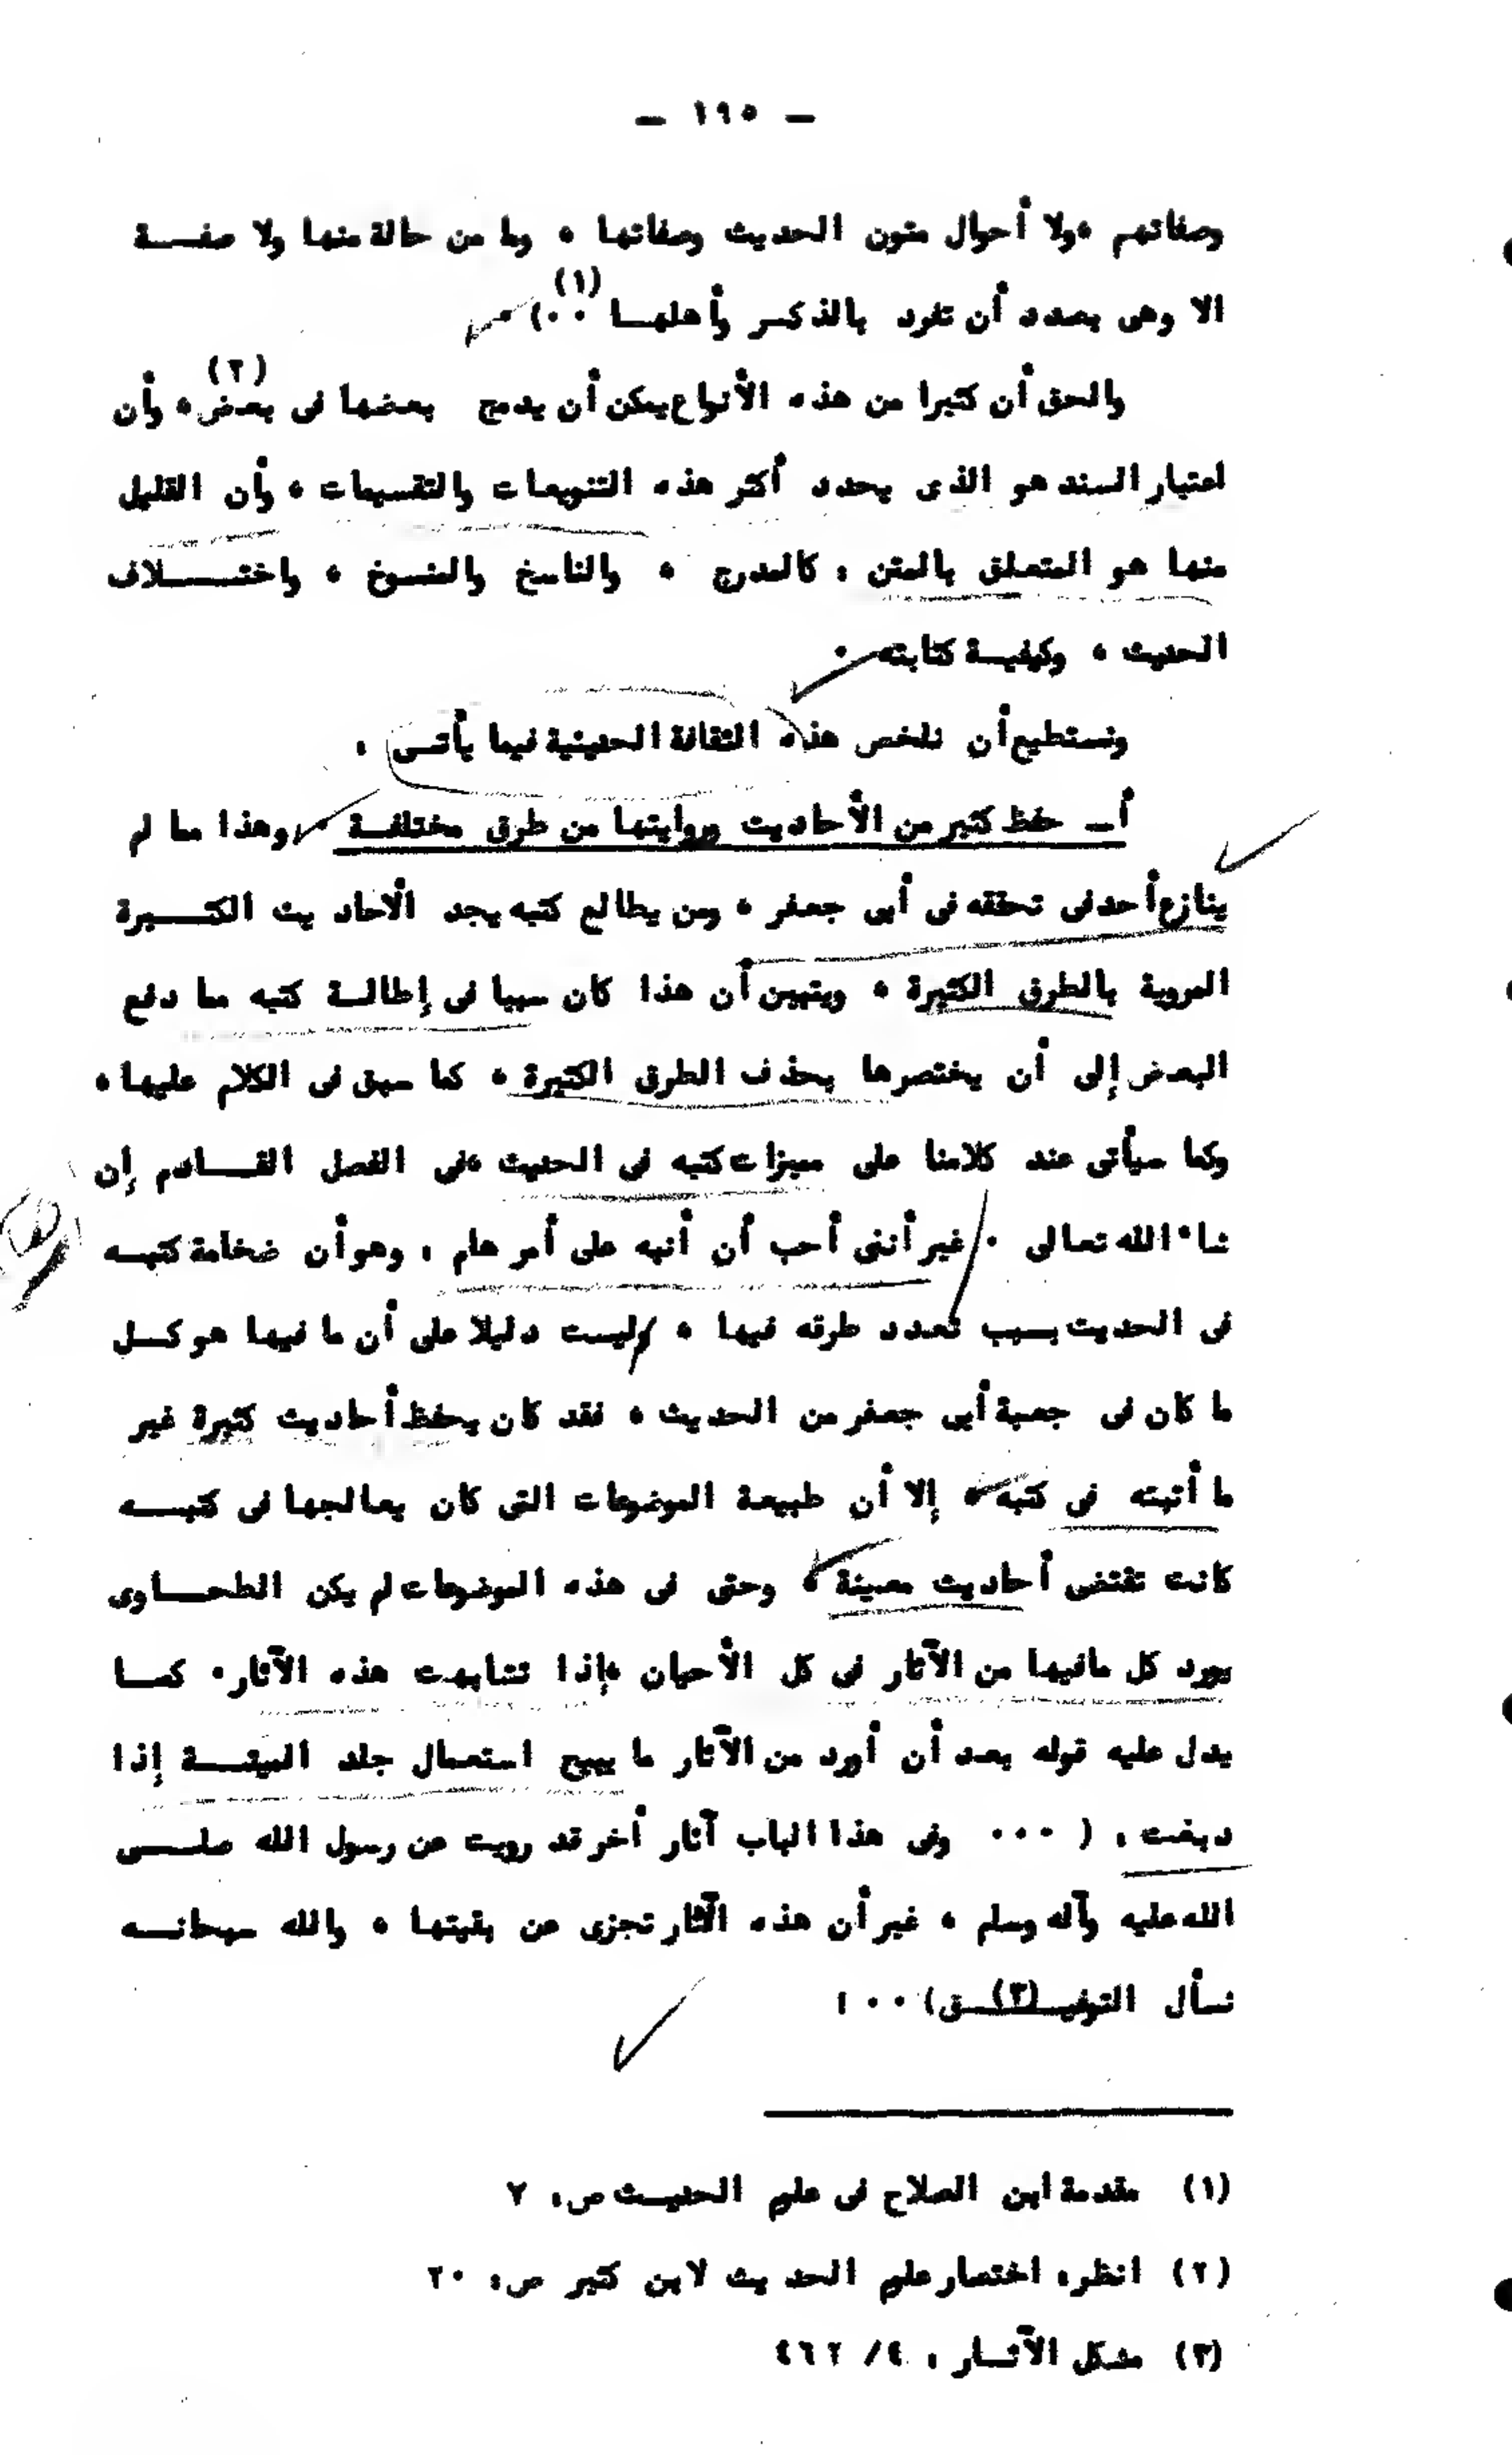 — ١٩٥ —
وصفاتهم ،ولا أحوال متون الحديث وصفاتها ، وما من حالة منها ولا صفـــة
الا وهى بصدد أن تفرد بالذكـر وأهلهــا ٠٠)(١) ٠
والحق أن كثيرا من هذه الأنواع يمكن أن يدمج بعضها فى بعض(٢)، وأن
اعتبار السند هو الذى يحدد أكثر هذه التنويعات والتقسيمات ، وأن القليل
منها هو المتعلق بالمتن : كالمدرج ، والناسخ والمنسوخ ، واختــــلاف
الحديث ، وكيفيـة كتابته ٠
ونستطيع أن نلخص هذه الثقافة الحديثية فيما يأتـى :
أ ــ حفظ كثير من الأحاديث وروايتها من طرق مختلفـة ٠ وهذا ما لم
ينازع أحد فى تحققه فى أبى جعفر ، ومن يطالع كتبه يجد الأحاديث الكثـــيرة
المروية بالطرق الكثيرة ، ويتبين أن هذا كان سببا فى إطالـة كتبه مما دفع
البعض إلى أن يختصرها بحذف الطرق الكثيرة ، كما سبق فى الكلام عليها ،
وكما سيأتى عند كلامنا على ميزات كتبه فى الحديث ،فى الفصل القــادم إن
شاء الله تعالى ٠ غير أننى أحب أن أنبه على أمر هام : وهو أن ضخامة كتبـه
فى الحديث بسبب تعدد طرقه فيها ، وليست دليلا على أن ما فيها هو كـل
ما كان فى جعبة أبى جعفر من الحديث ، فقد كان يحفظ أحاديث كثيرة غير
ما أثبته فى كتبه ، إلا أن طبيعة الموضوعات التى كان يعالجها فى كتبـــه
كانت تقتضى أحاديث معينة ، وحتى فى هذه الموضوعات لم يكن الطحــاوى
يورد كل مافيها من الآثار فى كل الأحيان ،إذا تشابهت هذه الآثار ٠ كمـا
يدل عليه قوله بعد أن أورد من الآثار ما يبيح استعمال جلد الميتــة إذا
دبغت : ( ٠٠٠ وفى هذا الباب آثار أخر قد رويت عن رسول الله صلــى
الله عليه وآله وسلم ، غير أن هذه الآثار تجزى عن بقيتها ، والله سبحانــه
نسأل التوفيــ(٣)ــق) ٠٠!
(١) مقدمة ابن الصلاح فى علوم الحديـث ص: ٧
(٢) انظر: اختصار علوم الحديث لابن كثير ص: ٢٠
(٣) مشكل الآثــار : ٤/ ٤٦٢